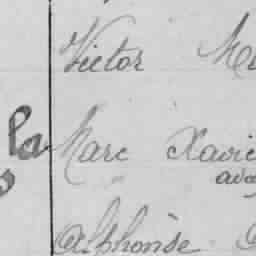 Victor
la Marc Xavie
Alphonse